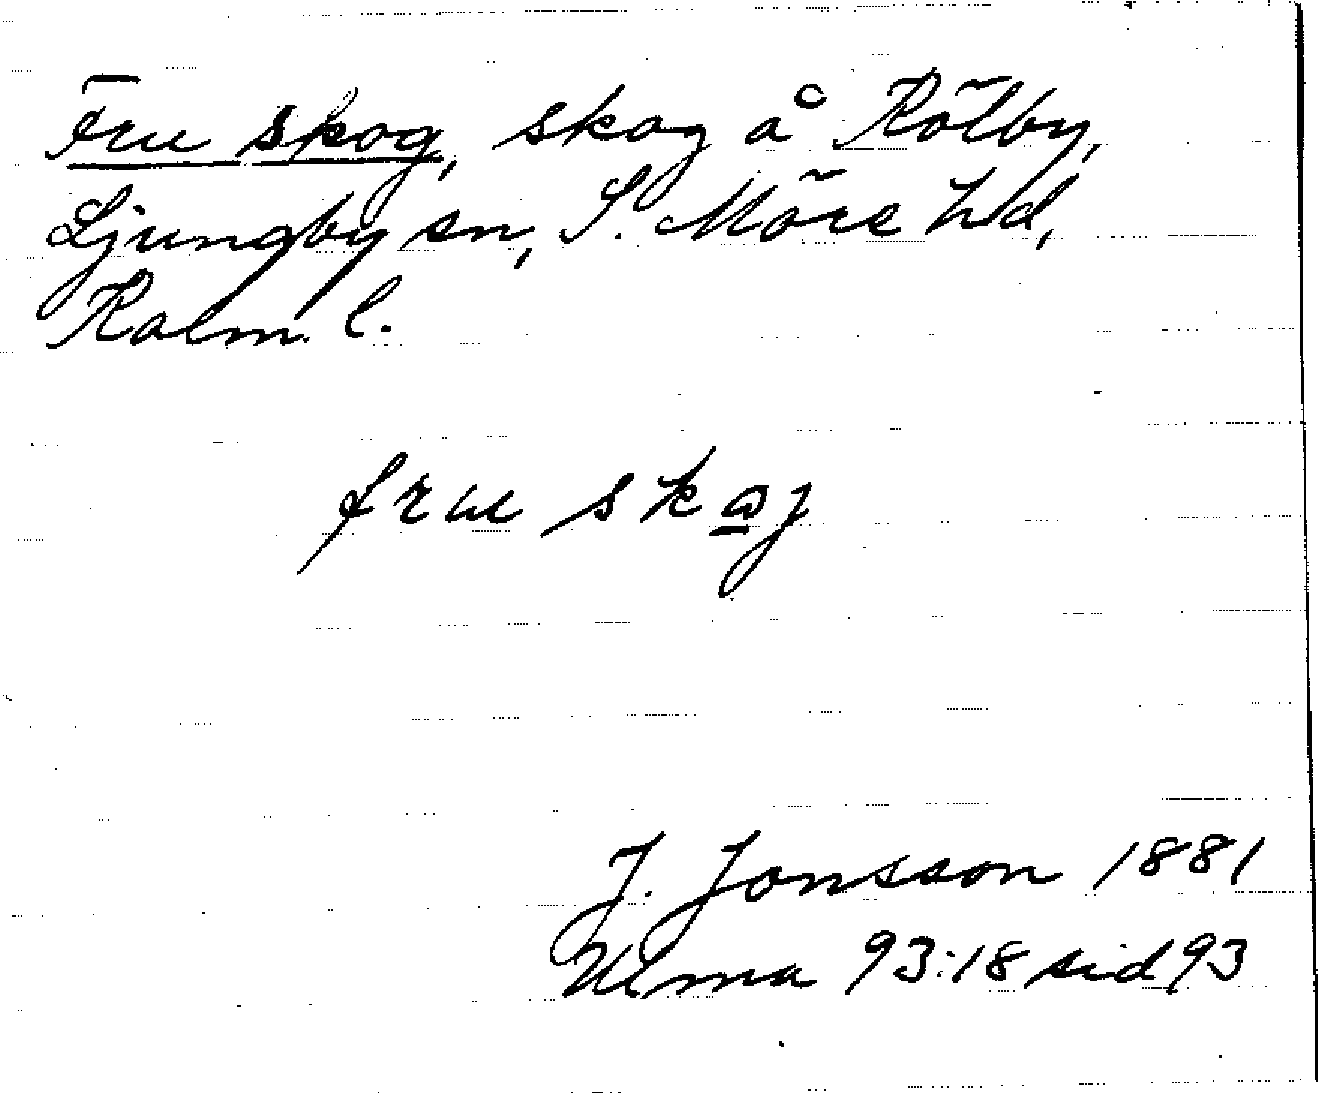 Fru skog, skog å Rölby,
Ljungby sn, S. Möre hd,
Kalm. l.
fru skoj
J. Jonsson 1881
Ulma 93:18 sid 93